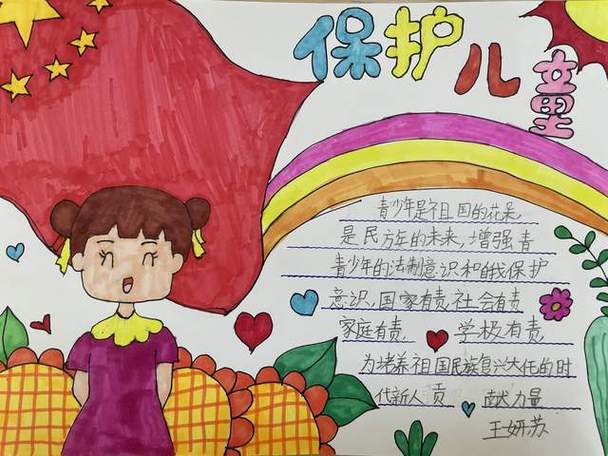 保护儿童
青少年是祖国的花朵
是民方年的未来,增强青
青少年的法制意识和的我保护
意识,国家有责,社会有责
家庭有责, 学校有责,
为培养祖国民族复兴大任的时
代新人贡 献力量
王妍苏